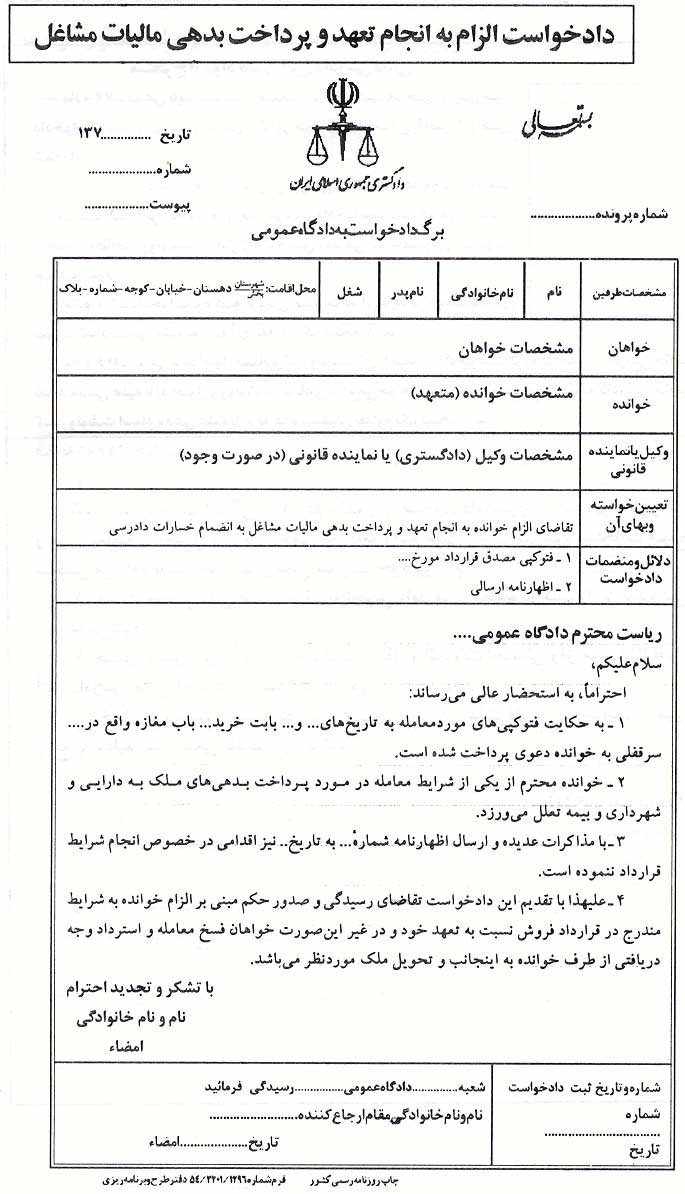 دادخواست الزام به انجام تعهد و پرداخت بدهی مالیات مشاغل
بسمه تعالی
تاریخ ...............۱۳۷
شماره....................
دادگستری جمهوری اسلامی ایران
پیوست...................
شماره پرونده...................
برگ دادخواست به دادگاه عمومی
مشخصات طرفین نام نام خانوادگی نام پدر شغل محل اقامت: شهرستان بخش دهستان-خیابان-کوچه-شماره-پلاک
خواهان مشخصات خواهان
خوانده مشخصات خوانده (متعهد)
وکیل یا نماینده قانونی مشخصات وکیل (دادگستری) یا نماینده قانونی (در صورت وجود)
تعیین خواسته وبهای آن تقاضای الزام خوانده به انجام تعهد و پرداخت بدهی مالیات مشاغل به انضمام خسارات دادرسی
دلائل و منضمات دادخواست ۱ ـ فتوکپی مصدق قرارداد مورخ....
۲ ـ اظهارنامه ارسالی
ریاست محترم دادگاه عمومی....
سلام علیکم،
احتراماً، به استحضار عالی می‌رساند:
۱ ـ به حکایت فتوکپی‌های موردمعامله به تاریخ‌های... و... بابت خرید... باب مغازه واقع در....
سرقفلی به خوانده دعوی پرداخت شده است.
۲ ـ خوانده محترم از یکی از شرایط معامله در مورد پرداخت بدهی‌های ملک به دارایی و
شهرداری و بیمه تعلل می‌ورزد.
۳ ـ با مذاکرات عدیده و ارسال اظهارنامه شمارهٔ... به تاریخ.. نیز اقدامی در خصوص انجام شرایط
قرارداد ننموده است.
۴ ـ علیهذا با تقدیم این دادخواست تقاضای رسیدگی و صدور حکم مبنی بر الزام خوانده به شرایط
مندرج در قرارداد فروش نسبت به تعهد خود و در غیر این‌صورت خواهان فسخ معامله و استرداد وجه
دریافتی از طرف خوانده به اینجانب و تحویل ملک موردنظر می‌باشد.
با تشکر و تجدید احترام
نام و نام خانوادگی
امضاء
شماره و تاریخ ثبت دادخواست
شماره
..............................
تاریخ
شعبه...............دادگاه عمومی................رسیدگی فرمائید
نام و نام خانوادگی مقام ارجاع کننده........................
تاریخ....................امضاء
چاپ روزنامه رسمی کشور فرم شماره ۵۴/۳۲۰۱/۱۲۹۶ دفتر طرح و برنامه ریزی